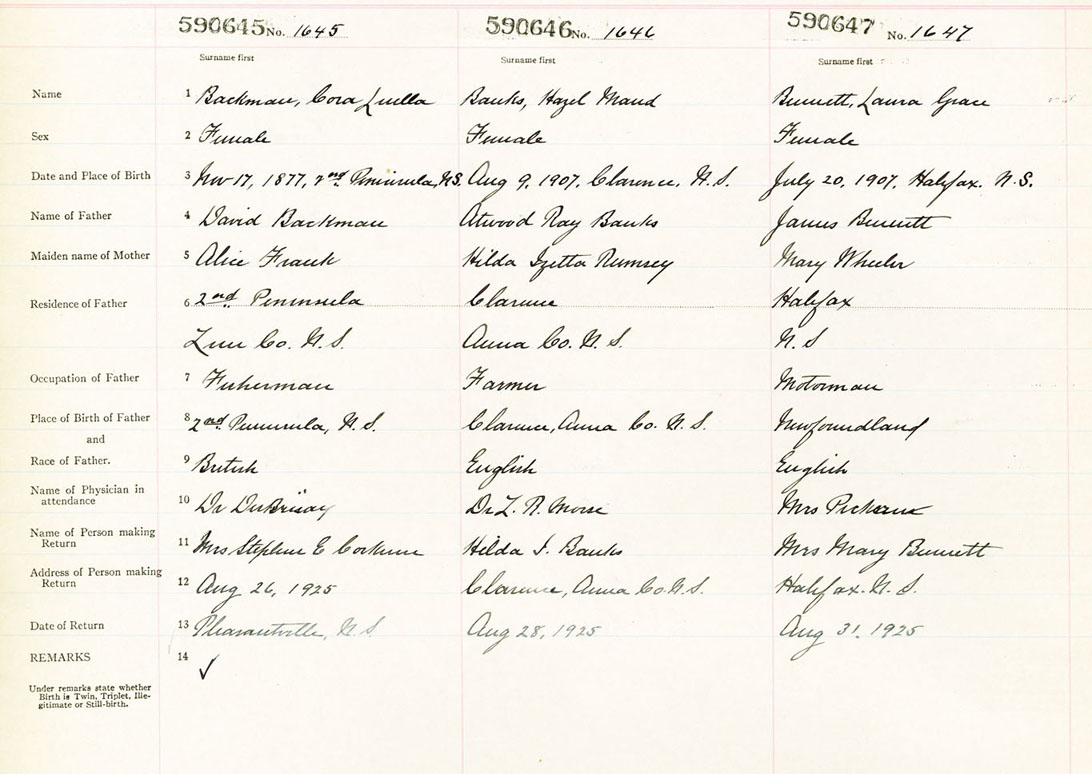 590645 No. 1645 590646 No. 1646 590647 No. 1647
Surname first Surname first Surname first
Name 1 Backman, Cora Luella Banks, Hazel Maud Bennett, Laura Grace
Sex 2 Female Female Female
Date and Place of Birth 3 Nov 17, 1877, 2nd Peninsula, N.S. Aug 9, 1907, Clarence, N.S. July 20, 1907, Halifax, N.S.
Name of Father 4 David Backman Atwood Ray Banks James Bennett
Maiden name of Mother 5 Alice Frank Hilda Izetta Rumsey Mary Wheeler
Residence of Father 6 2nd Peninsula Clarence Halifax
Lun Co. N.S. Anna Co. N.S. N.S
Occupation of Father 7 Fisherman Farmer Motorman
Place of Birth of Father 8 2nd Peninsula, N.S. Clarence, Anna Co. N.S. Newfoundland
and
Race of Father. 9 British English English
Name of Physician in
attendance 10 Dr DesBrisay Dr L. R. Morse Mrs
Name of Person making
Return 11 Mrs Stephen E Corkum Hilda I. Banks Mrs Mary Bennett
Address of Person making
Return 12 Aug 26, 1925 Clarence, Anna Co. N.S. Halifax. N.S.
Date of Return 13 Pleasantville, N.S. Aug 28, 1925 Aug 31, 1925
REMARKS 14 ✓
Under remarks state whether
Birth is Twin, Triplet, Ille-
gitimate or Still-birth.